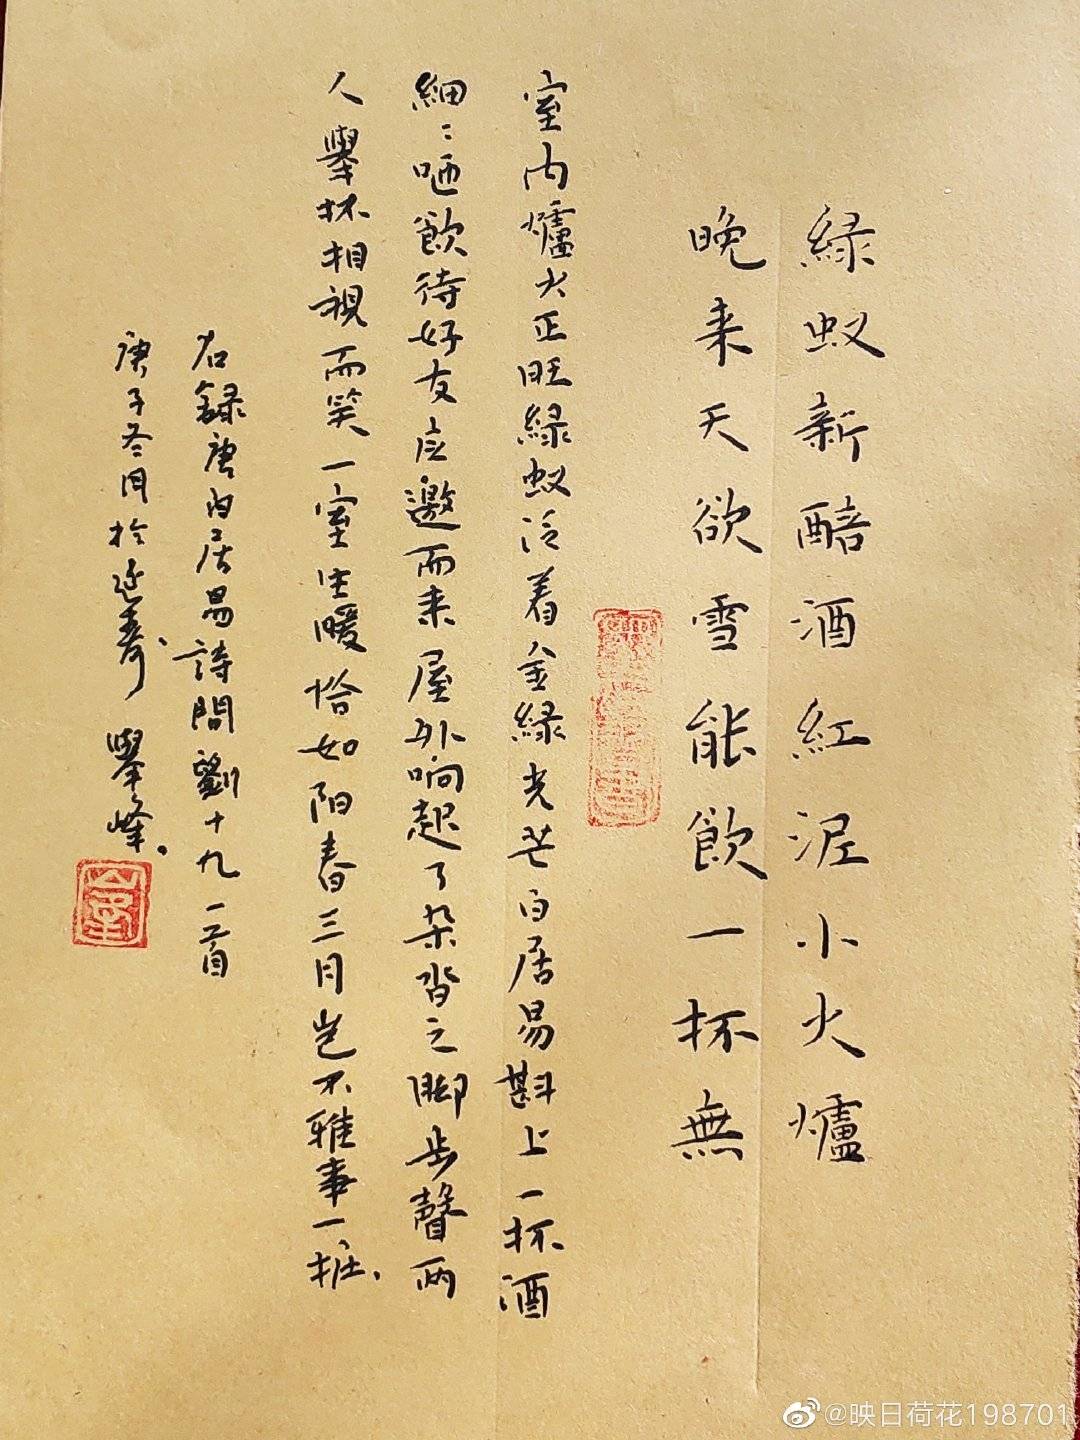 緑蚁新醅酒紅泥小火爐
晚来天欲雪能飲一杯無
室内爐火正旺緑蚁泛着金緑光芒白居易斟上一杯酒
細〻哂飲待好友应邀而来屋外响起了杂沓之脚步聲两
人舉杯相視而笑一室生暖恰如阳春三月岂不雅事一桩、
右録唐白居易詩問劉十九一首
庚子冬月於延寿、舉峰。
@映日荷花198701